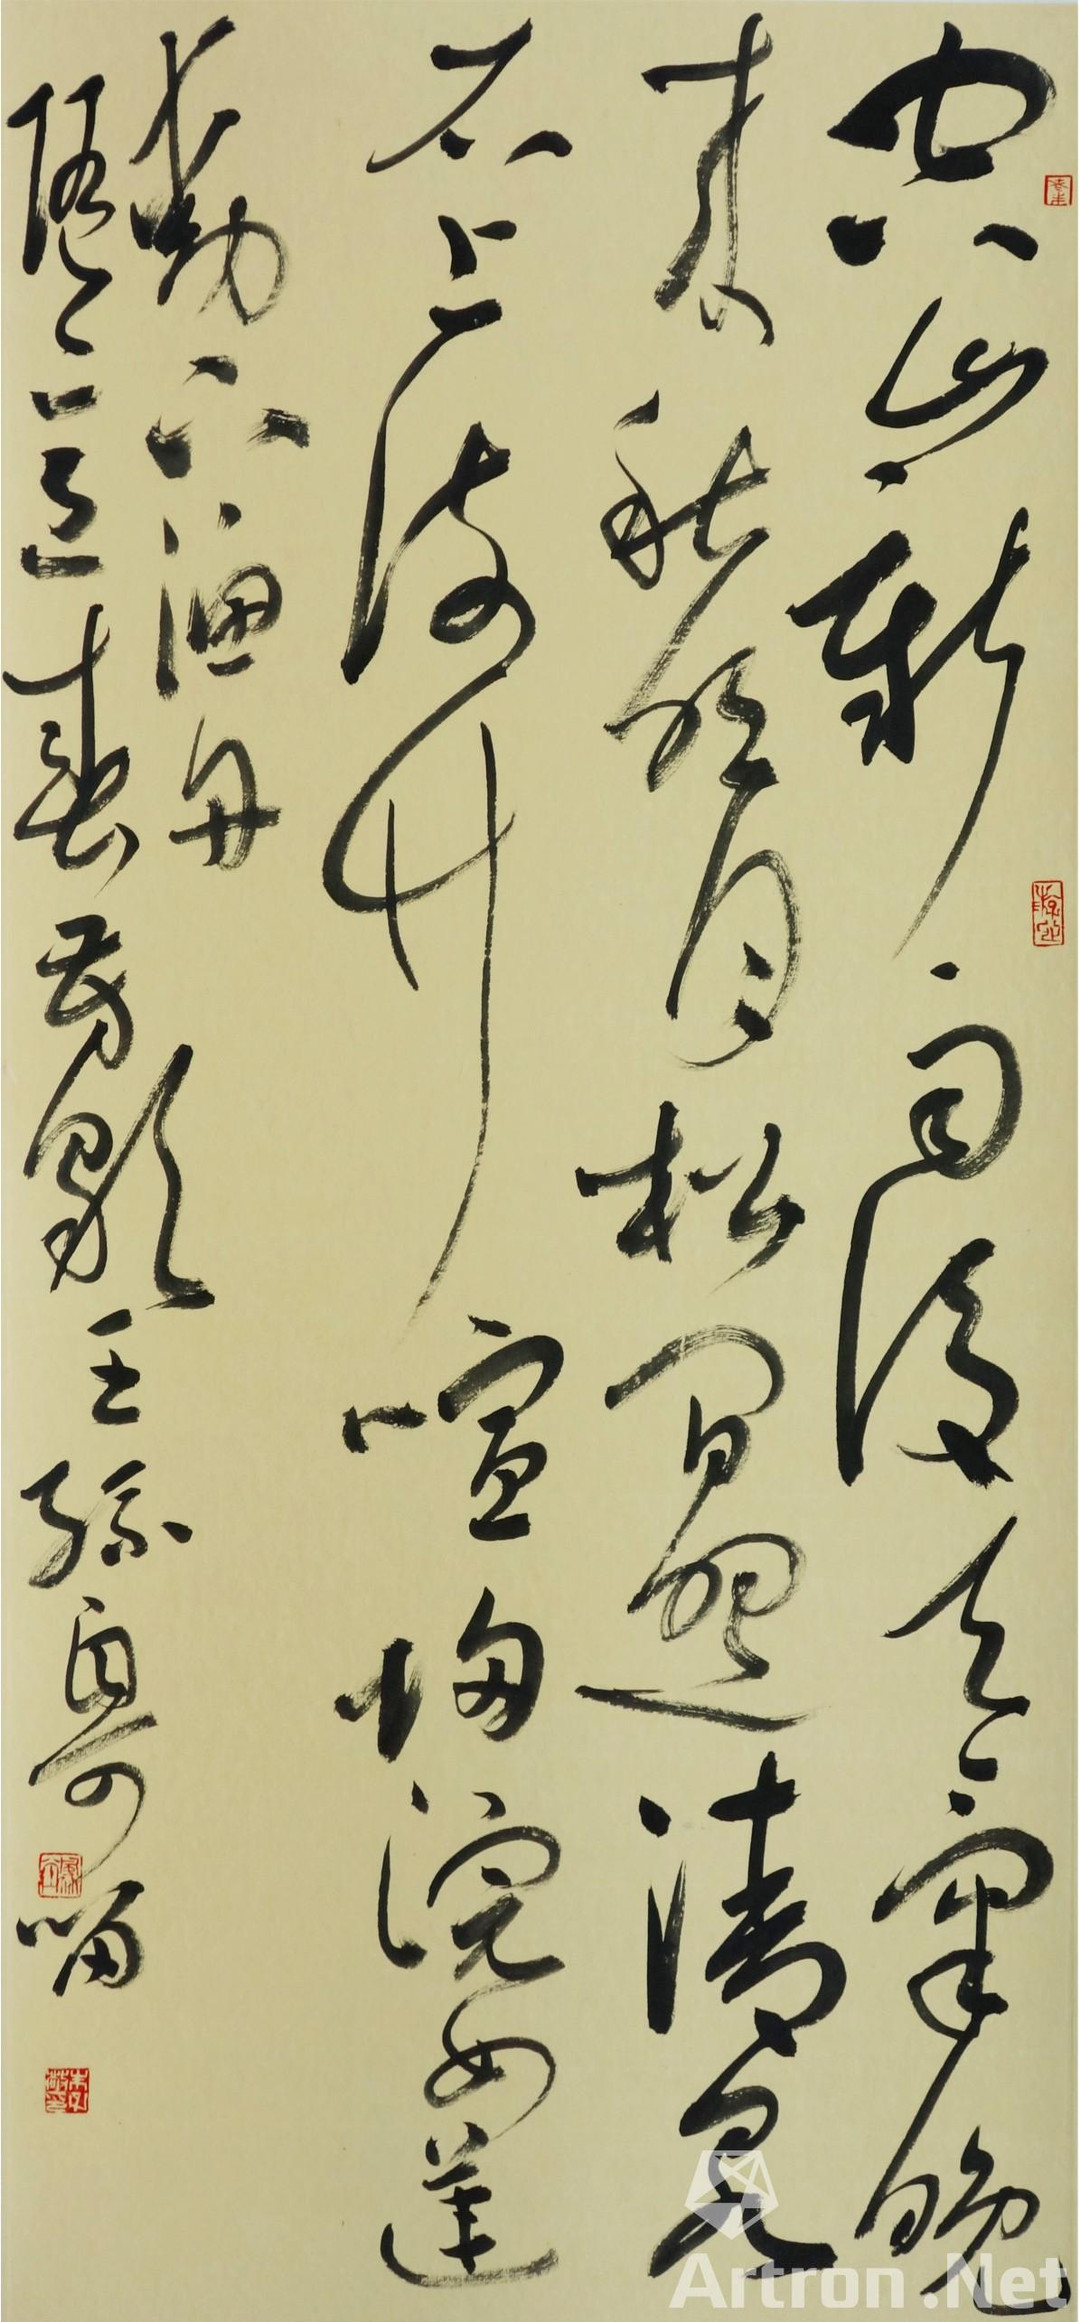 空山新雨後天氣晚
来秋明月松間照清泉
石上流竹喧歸浣女蓮
動下漁舟
隨意春芳歇王孫自可留
Artron.Net